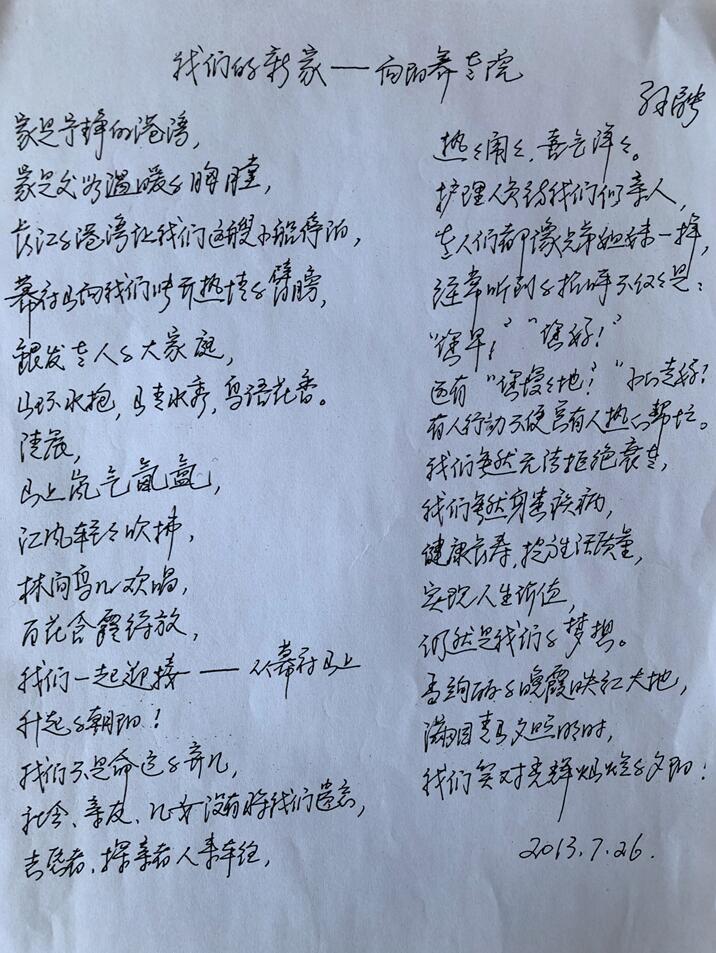 我们的新家——向阳养老院
孙骋
家是宁静的港湾,
家是父严温暖的胸膛,
长江的港湾让我们这艘小船停泊,
幕府山向我们呼开热情的臂膀,
银发老人的大家庭,
山环水抱,山青水秀,鸟语花香。
清晨,
山上岚气氤氲,
江风轻轻吹拂,
林间鸟儿欢唱,
百花含露绽放,
我们一起迎接——从幕府山上
升起的朝阳!
我们不是命运的弃儿,
社会、亲友、儿女没有将我们遗忘,
志愿者、探亲者人来车往,
热热闹闹、喜气洋洋。
护理人员待我们似亲人,
老人们都像兄弟姐妹一样,
经常听到的招呼不仅仅是:
“您早!”“您好!”
还有“您慢慢地!”“小心走好!
有人行动不便总有人热心帮忙。
我们虽然无法拒绝衰老,
我们虽然身患疾病,
健康长寿,提高生活质量,
实现人生价值,
仍然是我们的梦想。
当绚丽的晚霞映红大地,
满目青山夕照明时,
我们笑对光辉灿烂的夕阳!
2013.7.26.